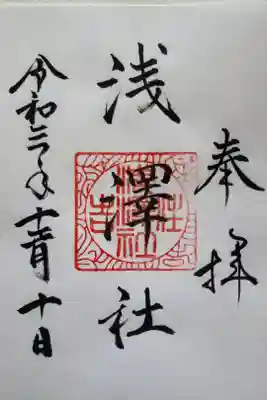 奉拝
浅澤社
令和三年十一月十日